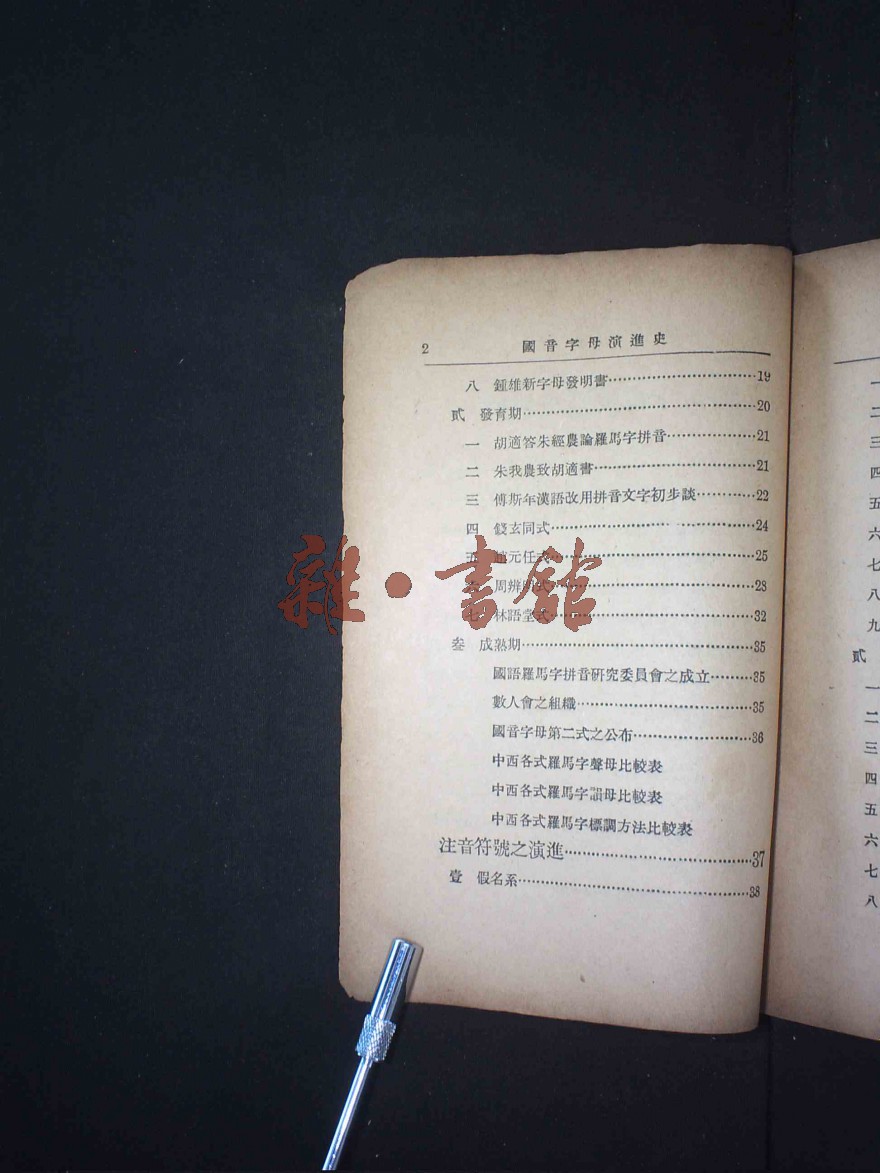 2 國音字母演進史
八 鍾雄新字母發明書 19
貳 發育期 20
一 胡適答朱經農論羅馬字拼音 21
二 朱我農致胡適書 21
三 傅斯年漢語改用拼音文字初步談 22
四 錢玄同式 24
五 元任式 25
周辨明式 28
七 林語堂式 32
叁 成熟期 35
國語羅馬字拼音研究委員會之成立 35
數人會之組織 35
國音字母第二式之公布 36
中西各式羅馬字聲母比較表
中西各式羅馬字韻母比較表
中西各式羅馬字標調方法比較表
注音符號之演進 37
壹 假名系 38
雜·書館
一
二
三
四
五
六
七
八
九
貳
一
二
三
四
五
六
七
八